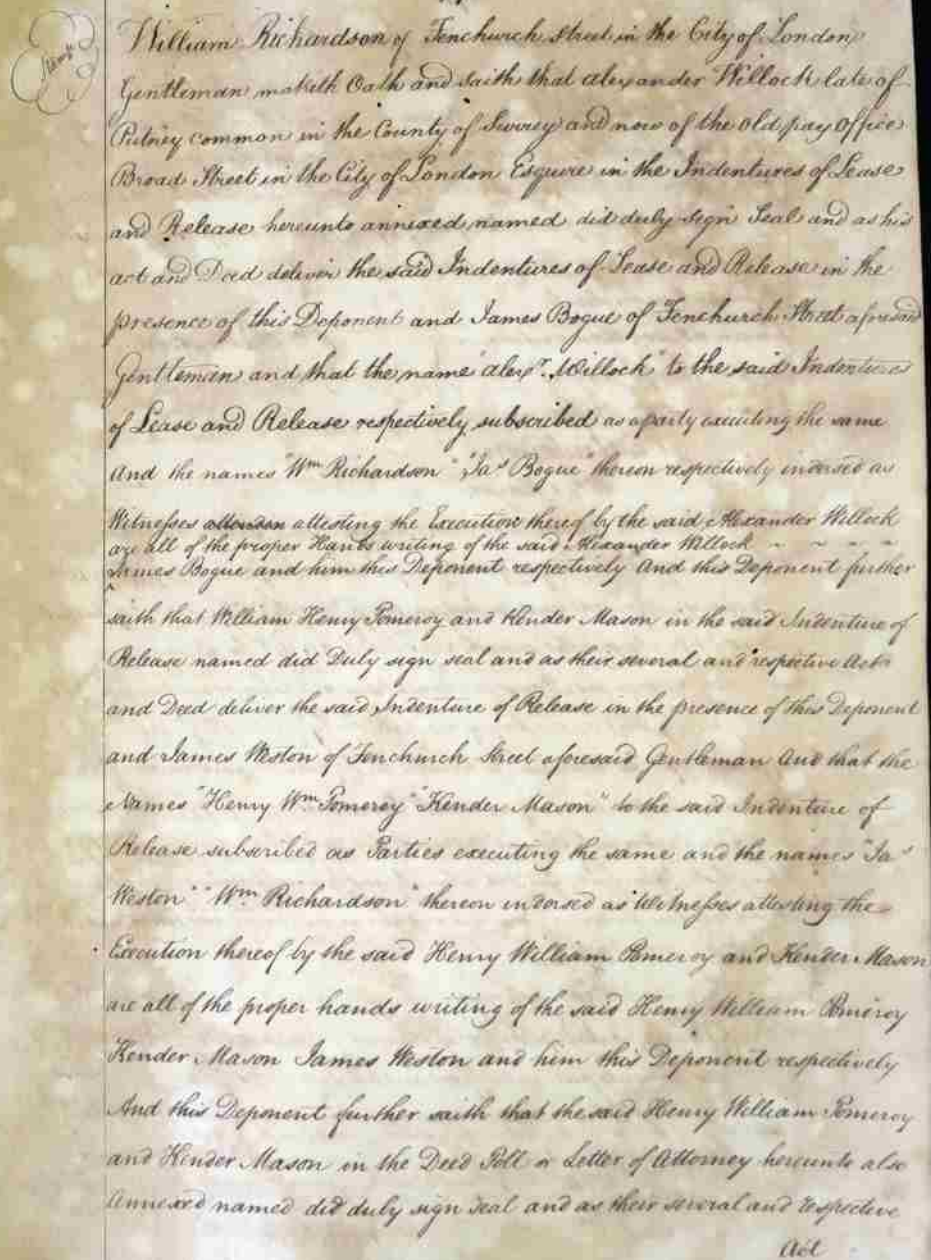 Stamp
William Richardson of Fenchurch Street in the City of London
Gentleman maketh Oath and saith that alexander Willock late of
Putney common in the County of Surrey and now of the old pay Office
Broad Street in the City of London Esquire in the Indentures of Lease
and Release hereunto annexed named did duly sign Seal and as his
act and Deed deliver the said Indentures of Lease and Release in the
presence of this Deponent and James Bogue of Fenchurch Street aforesaid
Gentleman and that the name "alexr. Willock" to the said Indentures
of Lease and Release respectively subscribed as a party executing the same
And the names "Wm Richardson" "Jas Bogue" thereon respectively indorsed as
Witnesses attesting the Execution thereof by the said Alexander Willock
are all of the proper Hands writing of the said Alexander Willock ~ ~ ~ ~
James Bogue and him this Deponent respectively And this Deponent further
saith that William Henry Pomeroy and Kender Mason in the said Indenture of
Release named did Duly sign seal and as their several and respective Acts
and Deed deliver the said Indenture of Release in the presence of this Deponent
and James Weston of Fenchurch Street aforesaid Gentleman And that the
Names "Henry Wm Pomeroy" "Kender Mason" to the said Indenture of
Release subscribed as Parties executing the same and the names "Jas
Weston" "Wm Richardson" thereon indorsed as Witnesses attesting the
Execution thereof by the said Henry William Pomeroy and Kender Mason
are all of the proper hands writing of the said Henry William Pomeroy
Kender Mason James Weston and him this Deponent respectively
And this Deponent further saith that the said Henry William Pomeroy
and Kender Mason in the Deed Poll or Letter of Attorney hereunto also
Annexed named did duly sign seal and as their several and respective
Act